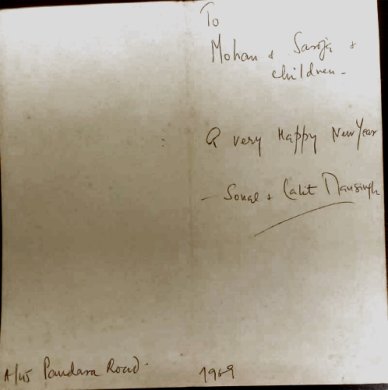 To
Mohan & Saroja &
children -
A very Happy New Year
- Sonal & Lalit Mansingh
A/45 Pandara Road.
1969